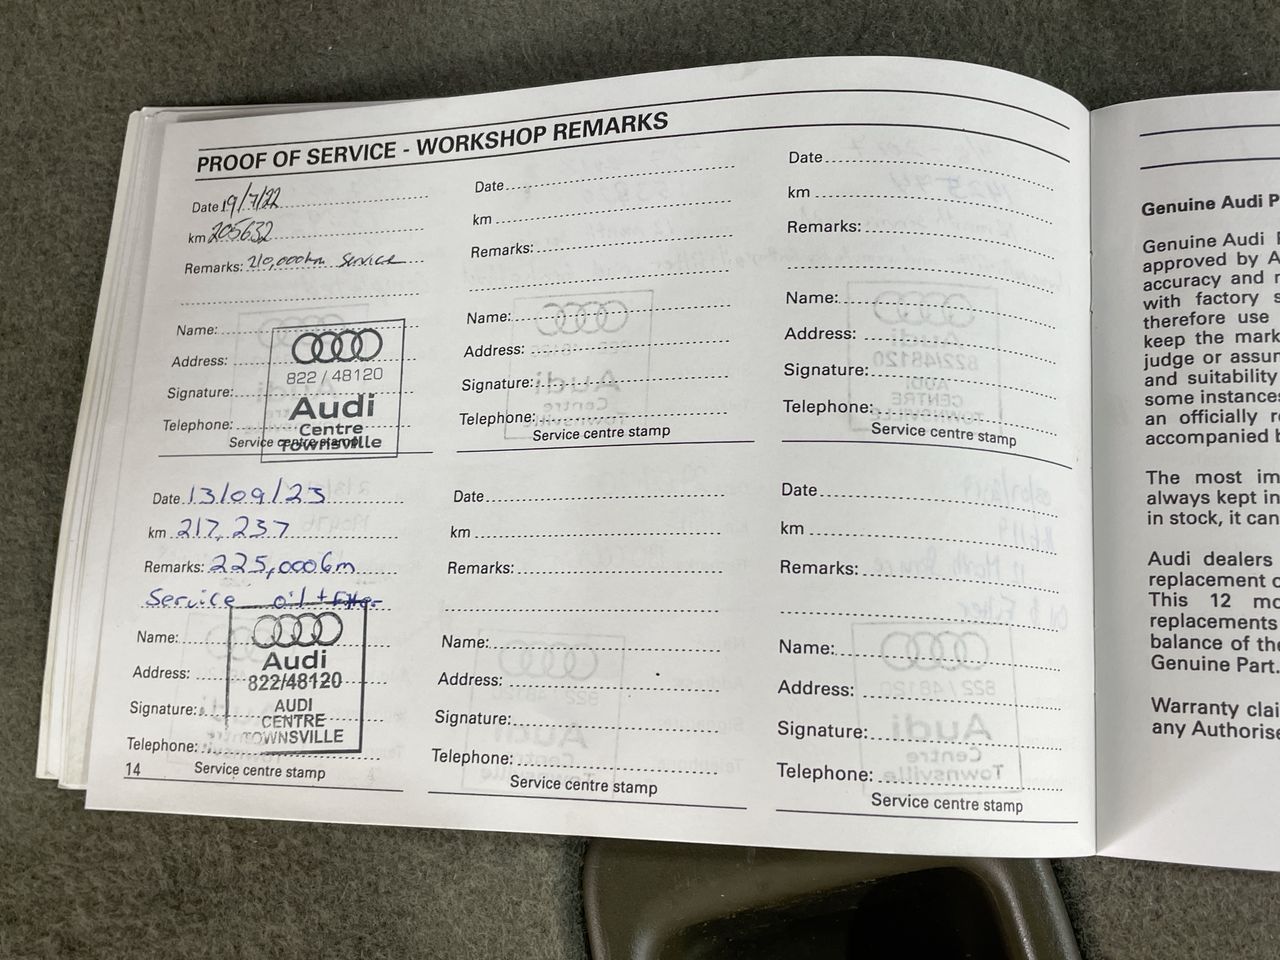 PROOF OF SERVICE - WORKSHOP REMARKS
Date 19/7/22
km 205632
Remarks: 210,000km Service
Name:
Address:
Signature:
Telephone:
822 / 48120
Audi
Centre
Townsville
Service centre stamp
Date 13/09/23
km 217,237
Remarks: 225,000km
Service oil + Filter
Name:
Address:
Signature:
Telephone:
Audi
822/48120
AUDI
CENTRE
TOWNSVILLE
Service centre stamp
14
Date
km
Remarks:
Name:
Address:
Signature:
Telephone:
Service centre stamp
Date
km
Remarks:
Name:
Address:
Signature:
Telephone:
Service centre stamp
Date
km
Remarks:
Name:
Address:
Signature:
Telephone:
Service centre stamp
Date
km
Remarks:
Name:
Address:
Signature:
Telephone:
Service centre stamp
Genuine Audi P
Genuine Audi
approved by A
accuracy and
with factory s
therefore use
keep the mark
judge or assum
and suitability
some instances
an officially re
accompanied b
The most im
always kept in
in stock, it can
Audi dealers
replacement o
This 12 mo
replacements
balance of the
Genuine Part.
Warranty clai
any Authorise